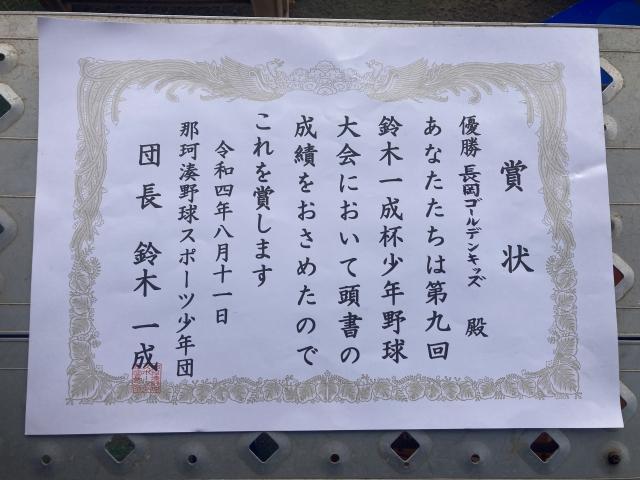 賞状
優勝 長岡ゴールデンキッズ 殿
あなたたちは第九回
鈴木一成杯少年野球
大会において頭書の
成績をおさめたので
これを賞します
令和四年八月十一日
那珂湊野球スポーツ少年団
団長 鈴木一成